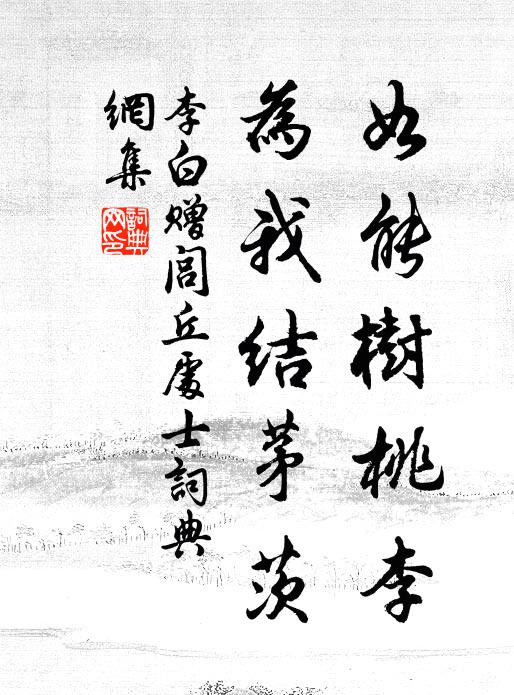 如能樹桃李
為我結茅茨
李白贈閭丘處士詞典
網集
詞典網印